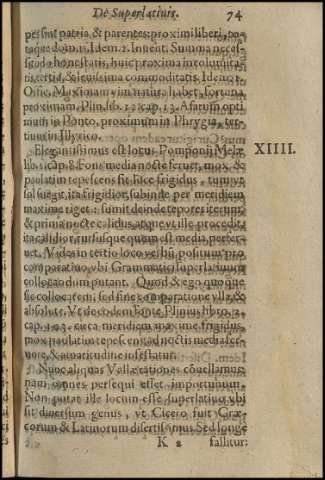 De Superlatiuis. 74
pessint patria, & parentes: proximi liberi, to-
taque domus. Idem. 2. Inuent. Summa neces-
situdo honestatis, huic proxima incolumita-
tis, tertia, & leuissima commoditatis. Idem 1.
Offic. Maximam vim natura habet, fortuna
proximam, Plin. lib. 12. cap. 13. Afarum opti-
mum in Ponto, proximum in Phrygia, ter-
tium in Illyrico.
Elegantissimus est locus Pomponij Melæ
lib. 1. cap. 8. Fons media nocte feruet, mox &
paulatim tepescens fit luce frigidus, tum vt
sol surgit, ita frigidior, subinde per meridiem
maxime riget: sumit deinde tepores iterum:
& prima nocte calidus, atque vt ille procedit,
ita calidior, rursusque quum est media perfer-
uet. Vides in tertio loco verbum positum pro
comparatiuo, vbi Grammatici superlatiuum
collocandum putant. Quod & ego quoque
sic collocarem, sed sine comparatione vlla, &
absolute. Vt de eodem Fonte, Plinius libro. 2.
cap. 103. circa meridiem maxime frigidus,
mox paulatim tepescens ad noctis media fer-
uore, & amaritudine infestatur.
Nunc aliquas Vallæ rationes cõuellamus:
nam omnes persequi esset importunum.
Non putat ille locum esse superlatiuo vbi
sit diuersum genus, vt Cicero fuit Græ-
corum & Latinorum disertissimus. Sed longe
K 2 fallitur:
XIIII.